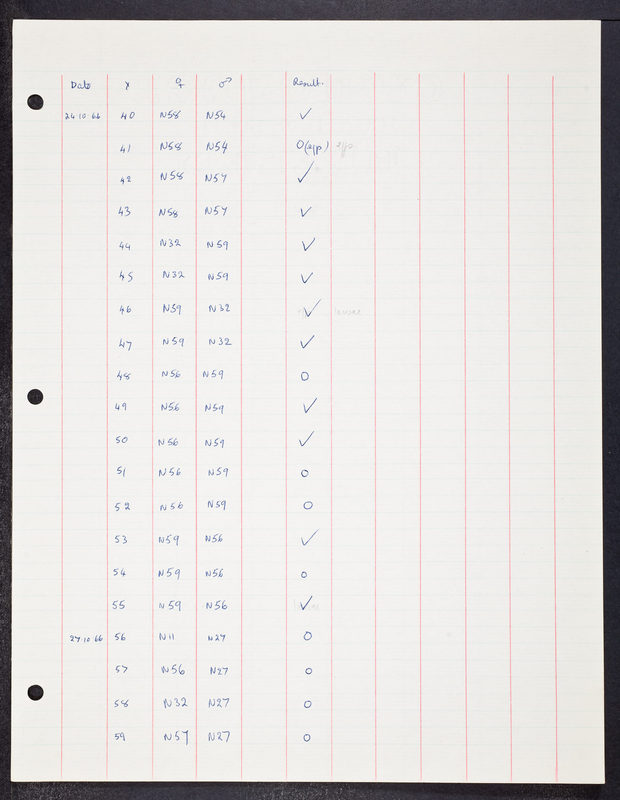 Date x ♀ ♂ Result.
24.10.66 40 N58 N54 ✓
41 N58 N54 O(2/p)
42 N58 N57 ✓
43 N58 N57 ✓
44 N32 N59 ✓
45 N32 N59 ✓
46 N59 N32 ✓ larvae
47 N59 N32 ✓
48 N56 N59 O
49 N56 N59 ✓
50 N56 N59 ✓
51 N56 N59 O
52 N56 N59 O
53 N59 N56 ✓
54 N59 N56 O
55 N59 N56 ✓
27.10.66 56 N11 N27 O
57 N56 N27 O
58 N32 N27 O
59 N57 N27 O